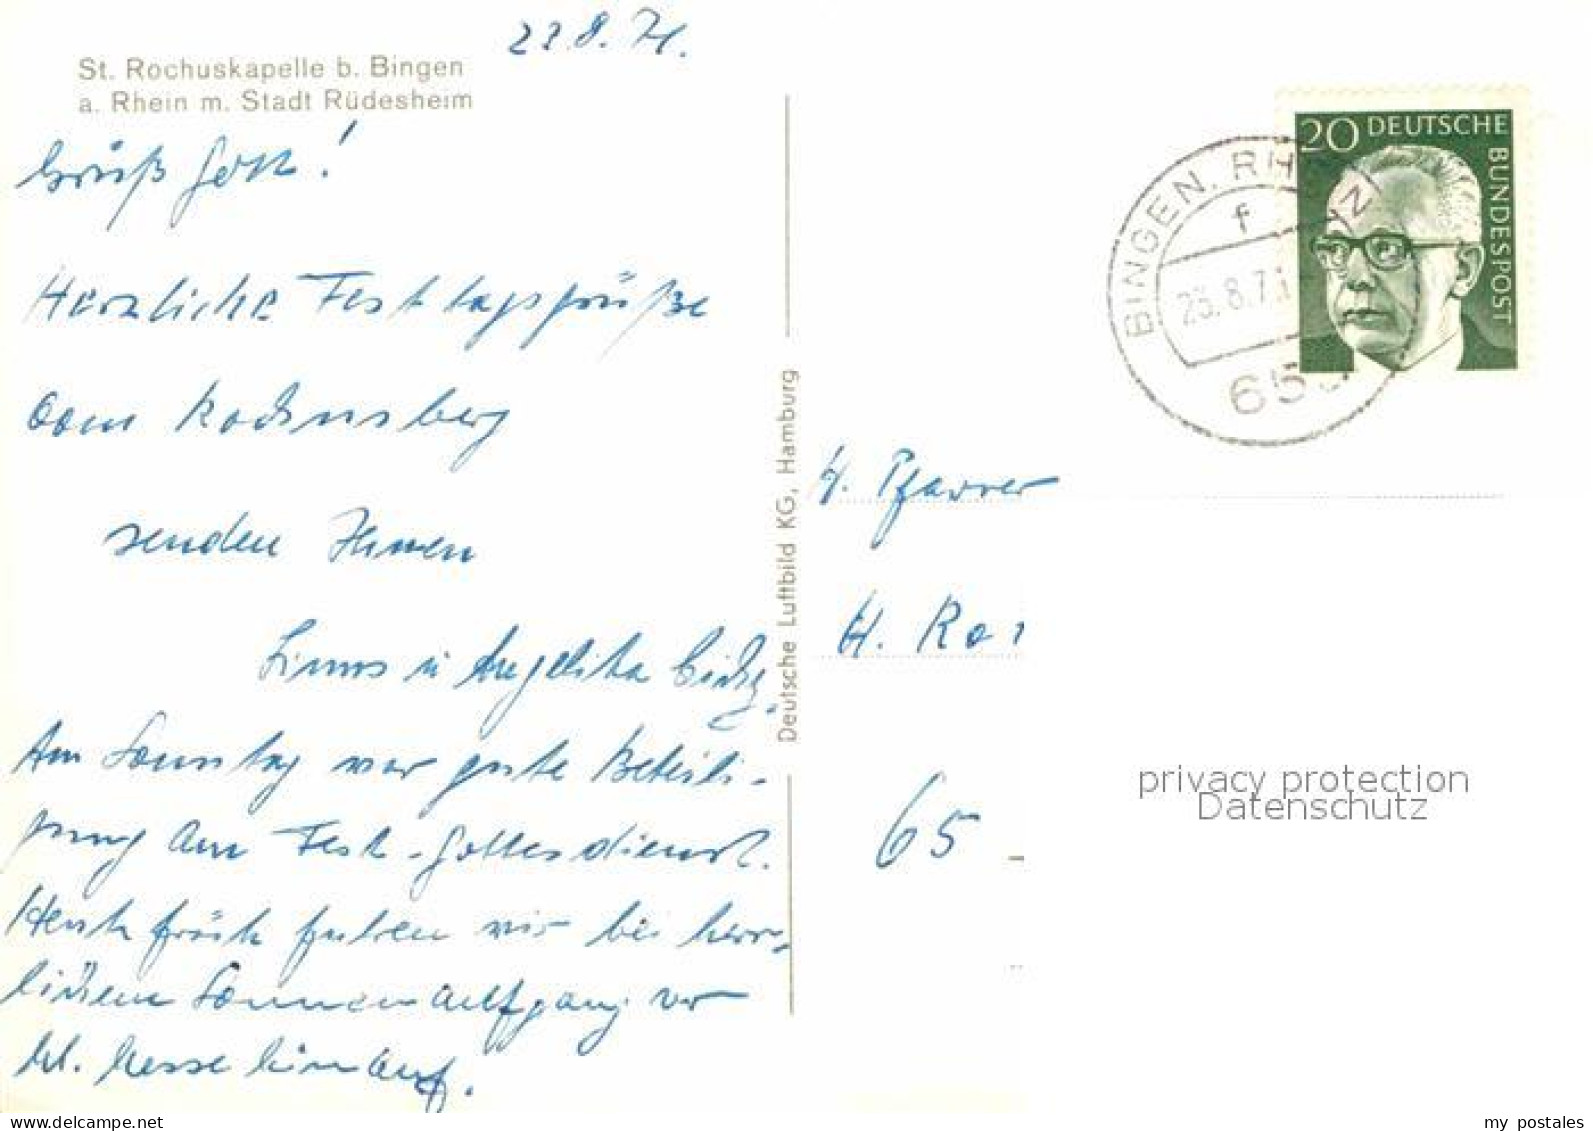 22.8.71.
St. Rochuskapelle b. Bingen
a. Rhein m. Stadt Rüdesheim
Grüß Gott!
Herzliche Festtagsgrüße
vom Rochusberg
senden Ihnen
Linus u Angelika
Am Sonntag war gute Beteili-
gung am Fest-Gottesdienst.
Heute früh fuhren wir bei herr-
lichem Sonnenaufgang vor
hl. Messe hinauf.
Deutsche Luftbild KG, Hamburg
20 DEUTSCHE
BUNDESPOST
BINGEN, RHEIN
f
23.8.71
65
H. Pfarrer
H.
65
privacy protection
Datenschutz
my postales